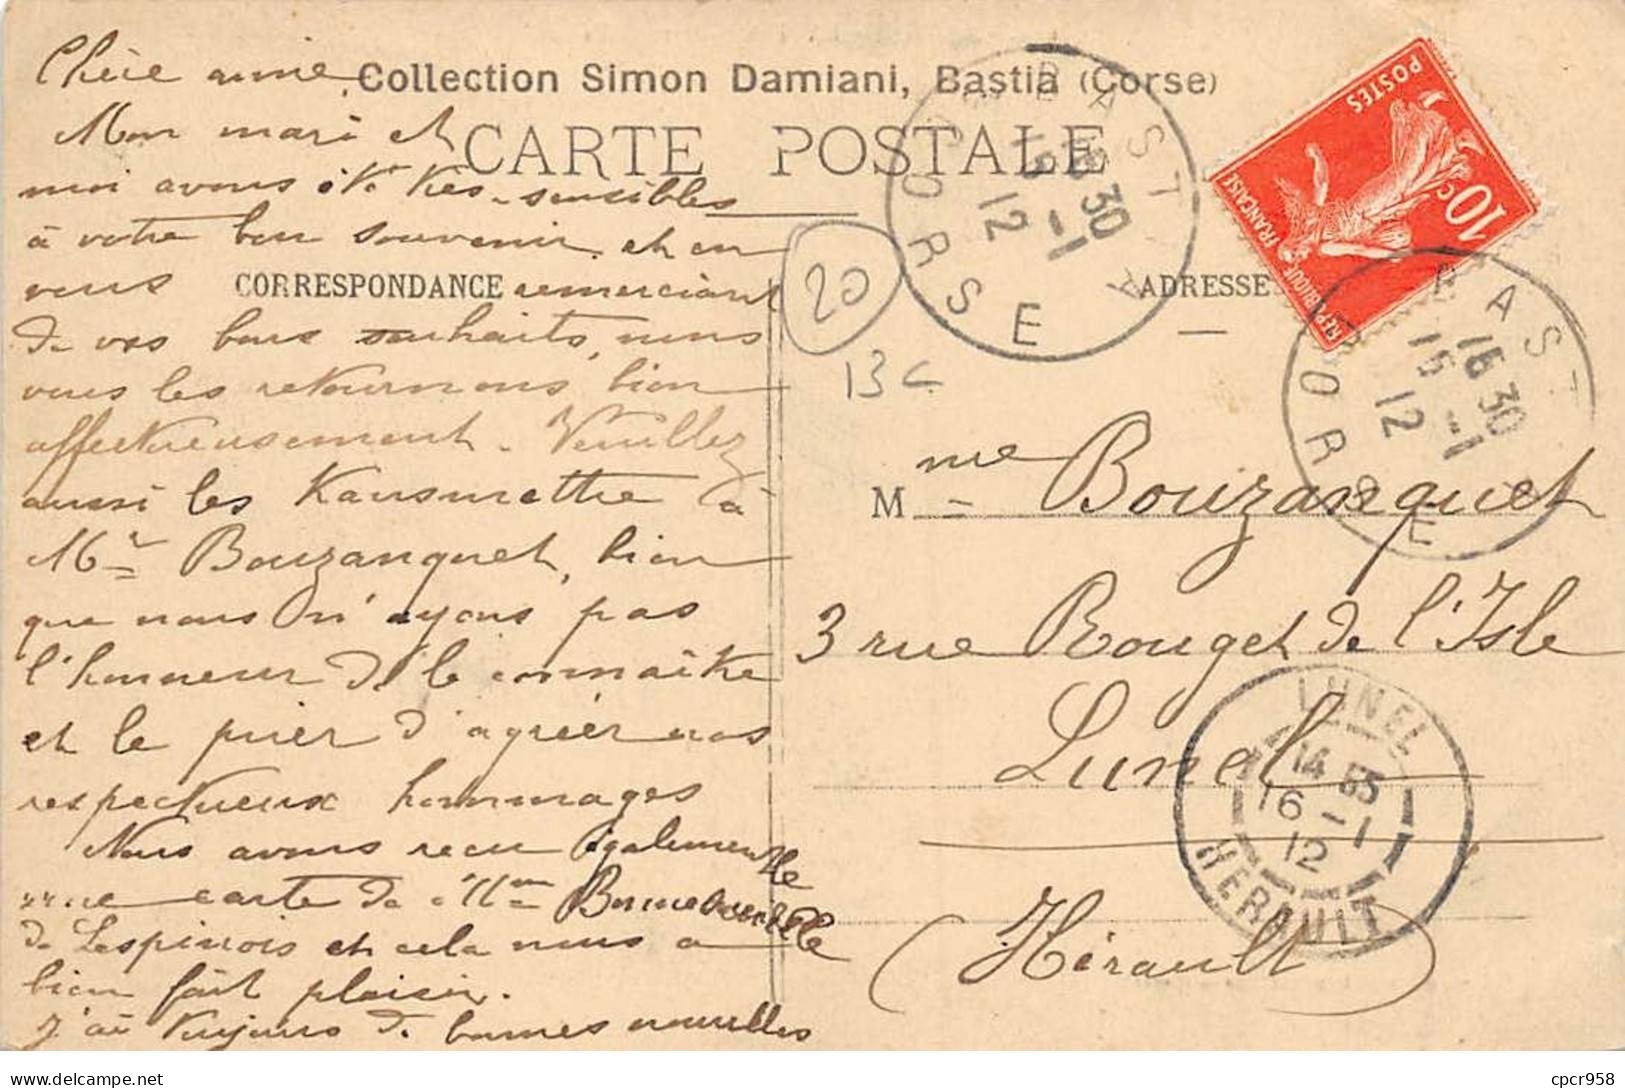 Collection Simon Damiani, Bastia (Corse)
CARTE POSTALE
CORRESPONDANCE
ADRESSE
Chère amie,
Mon mari et
moi avons été très sensibles
à votre bon souvenir et en
vous remerciant
de vos bons souhaits, nous
vous les retournons bien
affectueusement. Veuillez
aussi les transmettre à
Mr Bouzanquet, bien
que nous n'ayons pas
l'honneur de le connaître
et le prier d'agréer nos
respectueux hommages
Nous avons reçu également
une carte de Mme
de Lespinois et cela nous a
bien fait plaisir.
J'ai toujours de bonnes nouvelles
20
13 c
Mme Bouzanquet
3 rue Rouget de l'Isle
Lunel
(Hérault)
POSTES
10 c
REPUBLIQUE FRANÇAISE
BASTIA
30
-1
12
CORSE
BASTIA
16 30
15 -1
12
CORSE
LUNEL
14 55
16 -1
12
HERAULT
cpcr958